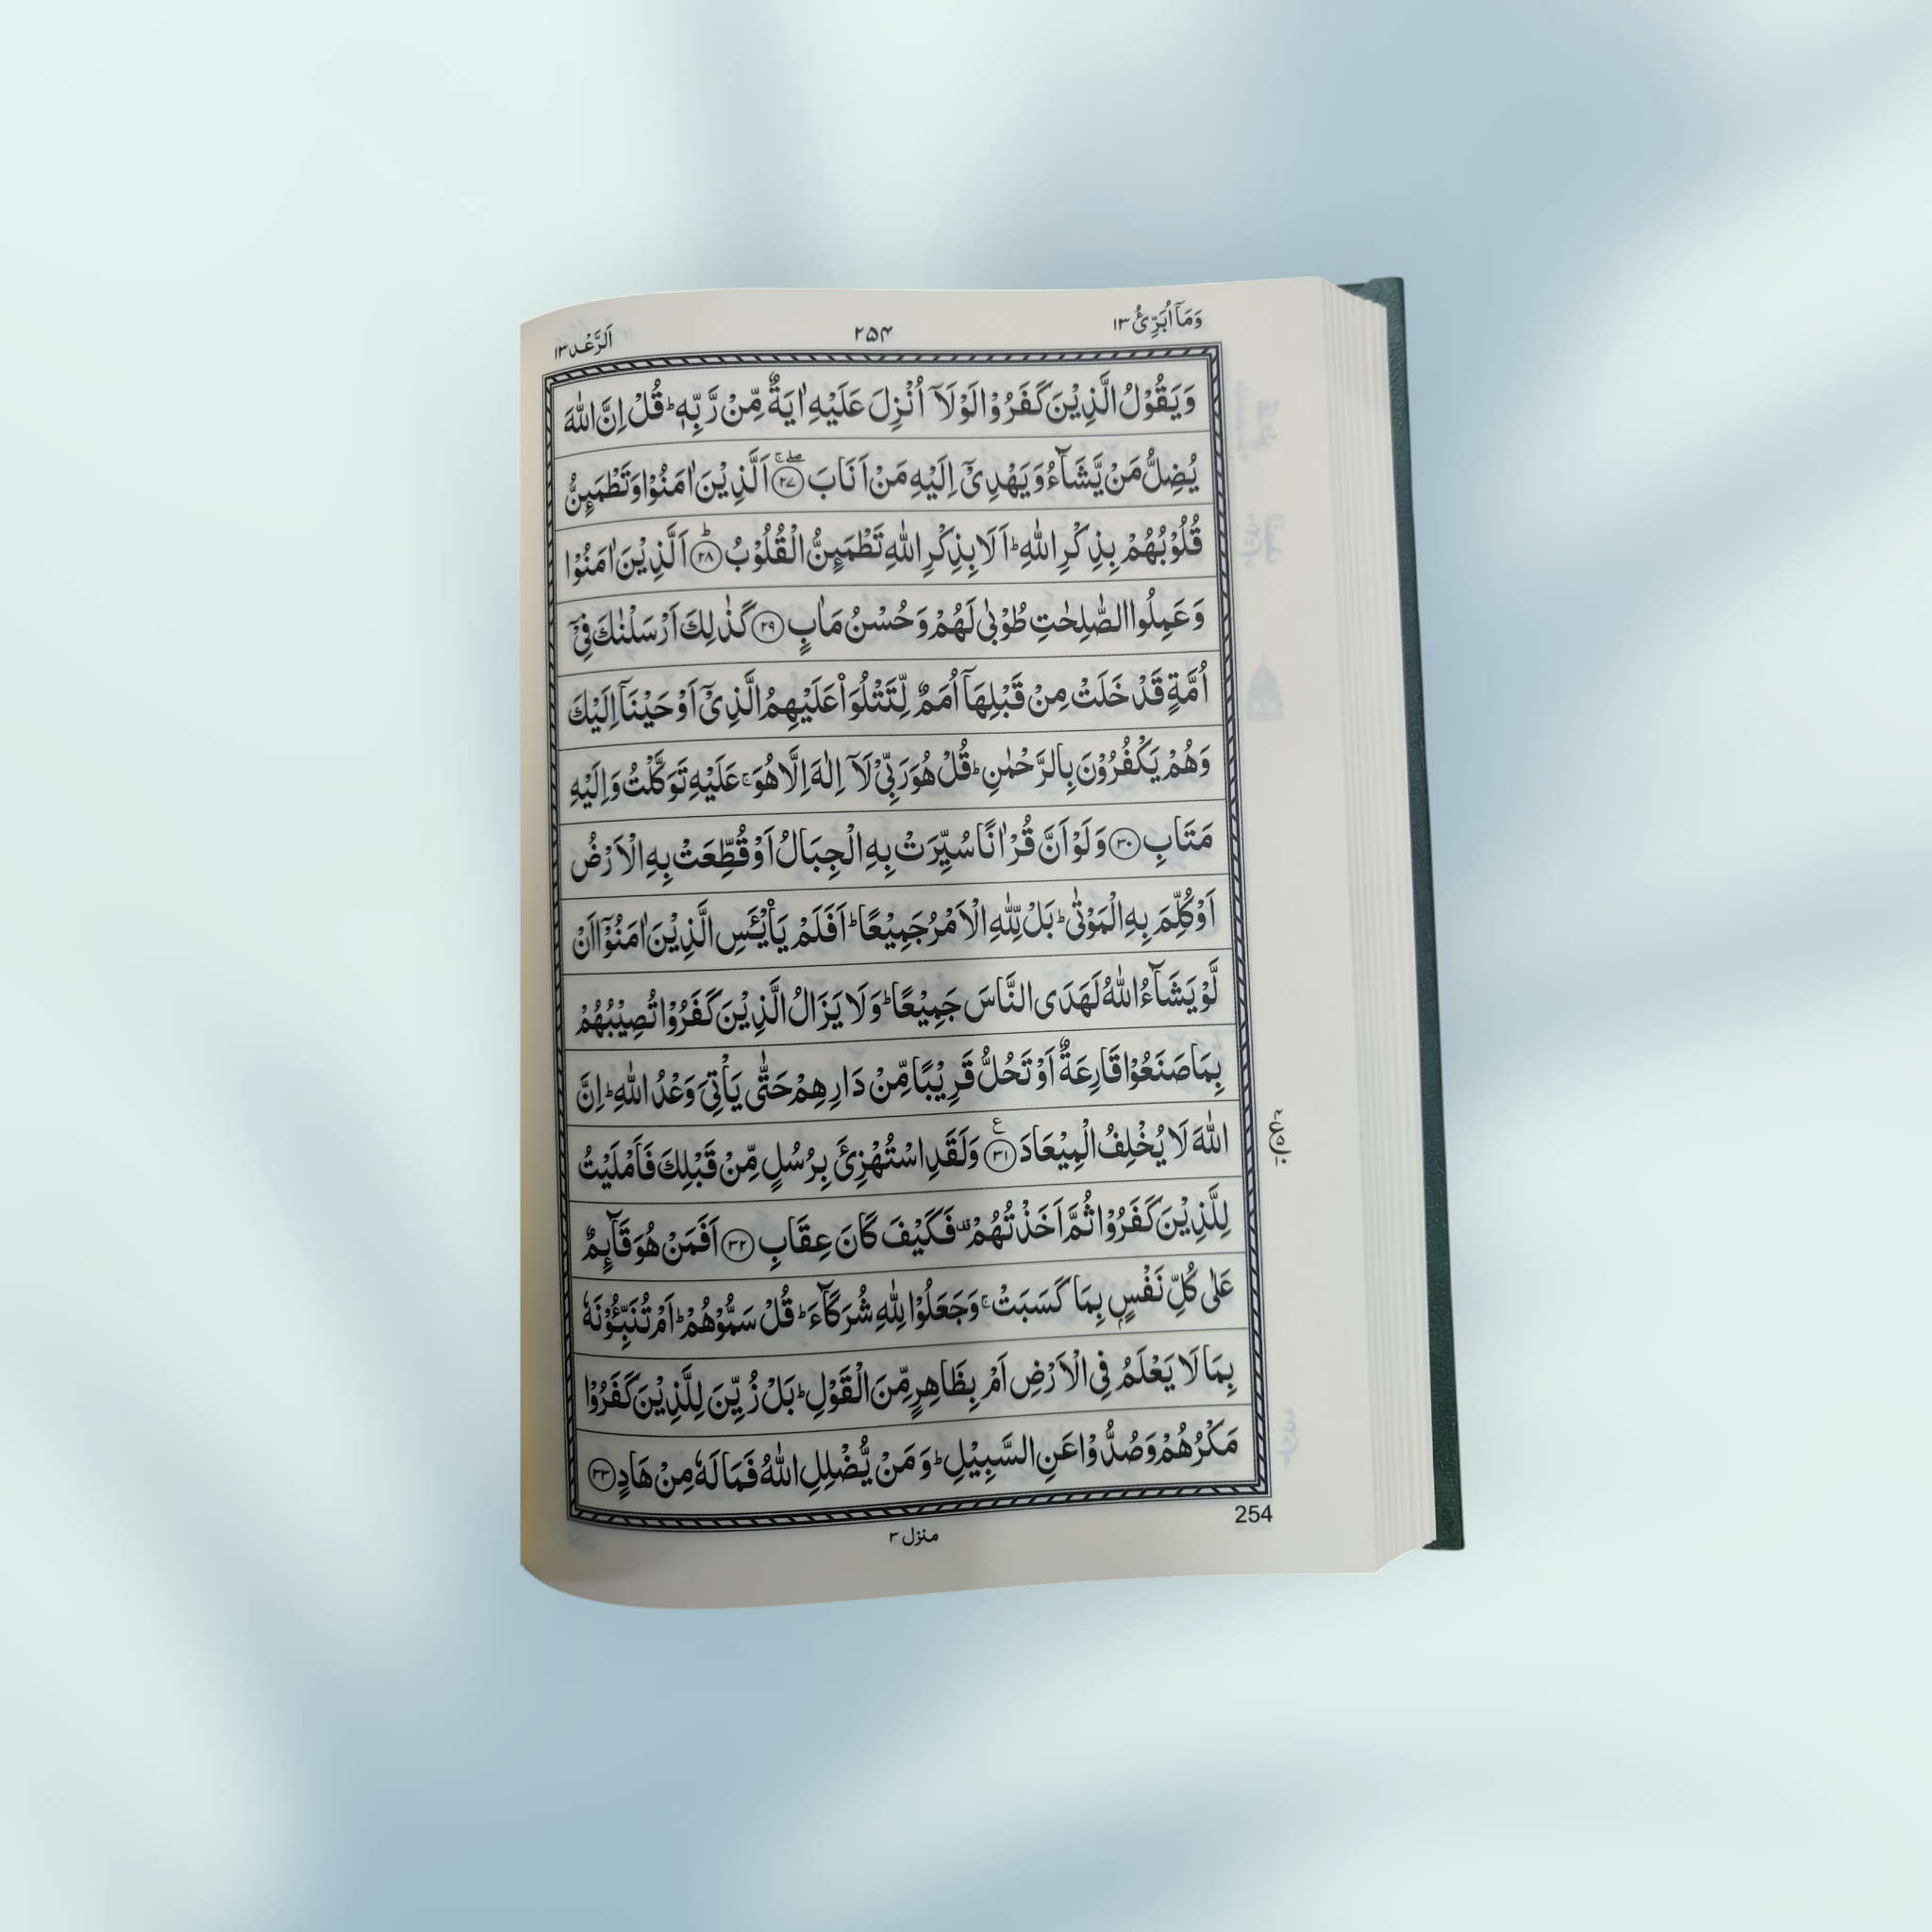 وَمَآ اُبَرِّئُ ۱۳
۲۵۴
اَلرَّعْد ۱۳
وَيَقُوْلُ الَّذِيْنَ كَفَرُوْا لَوْلَآ اُنْزِلَ عَلَيْهِ اٰيَةٌ مِّنْ رَّبِّهٖ ؕ قُلْ اِنَّ اللّٰهَ
يُضِلُّ مَنْ يَّشَآءُ وَيَهْدِىْٓ اِلَيْهِ مَنْ اَنَابَ ۖۚ‏﴿۲۷﴾ اَلَّذِيْنَ اٰمَنُوْا وَتَطْمَئِنُّ
قُلُوْبُهُمْ بِذِكْرِ اللّٰهِ ؕ اَلَا بِذِكْرِ اللّٰهِ تَطْمَئِنُّ الْقُلُوْبُ ؕ‏﴿۲۸﴾ اَلَّذِيْنَ اٰمَنُوْا
وَعَمِلُوا الصّٰلِحٰتِ طُوْبٰى لَهُمْ وَحُسْنُ مَاٰبٍ ‏﴿۲۹﴾ كَذٰلِكَ اَرْسَلْنٰكَ فِىْٓ
اُمَّةٍ قَدْ خَلَتْ مِنْ قَبْلِهَآ اُمَمٌ لِّتَتْلُوَا۟ عَلَيْهِمُ الَّذِىْٓ اَوْحَيْنَآ اِلَيْكَ
وَهُمْ يَكْفُرُوْنَ بِالرَّحْمٰنِ ؕ قُلْ هُوَ رَبِّىْ لَآ اِلٰهَ اِلَّا هُوَ ۚ عَلَيْهِ تَوَكَّلْتُ وَاِلَيْهِ
مَتَابِ ‏﴿۳۰﴾ وَلَوْ اَنَّ قُرْاٰنًا سُيِّرَتْ بِهِ الْجِبَالُ اَوْ قُطِّعَتْ بِهِ الْاَرْضُ
اَوْ كُلِّمَ بِهِ الْمَوْتٰى ؕ بَلْ لِّلّٰهِ الْاَمْرُ جَمِيْعًا ؕ اَفَلَمْ يَا۟يْـَٔسِ الَّذِيْنَ اٰمَنُوْٓا اَنْ
لَّوْ يَشَآءُ اللّٰهُ لَهَدَى النَّاسَ جَمِيْعًا ؕ وَلَا يَزَالُ الَّذِيْنَ كَفَرُوْا تُصِيْبُهُمْ
بِمَا صَنَعُوْا قَارِعَةٌ اَوْ تَحُلُّ قَرِيْبًا مِّنْ دَارِهِمْ حَتّٰى يَاْتِىَ وَعْدُ اللّٰهِ ؕ اِنَّ
اللّٰهَ لَا يُخْلِفُ الْمِيْعَادَ ‏﴿۳۱﴾ ع وَلَقَدِ اسْتُهْزِئَ بِرُسُلٍ مِّنْ قَبْلِكَ فَاَمْلَيْتُ
لِلَّذِيْنَ كَفَرُوْا ثُمَّ اَخَذْتُهُمْ ۫ فَكَيْفَ كَانَ عِقَابِ ‏﴿۳۲﴾ اَفَمَنْ هُوَ قَآئِمٌ
عَلٰى كُلِّ نَفْسٍۭ بِمَا كَسَبَتْ ۚ وَجَعَلُوْا لِلّٰهِ شُرَكَآءَ ؕ قُلْ سَمُّوْهُمْ ؕ اَمْ تُنَبِّـُٔوْنَهٗ
بِمَا لَا يَعْلَمُ فِى الْاَرْضِ اَمْ بِظَاهِرٍ مِّنَ الْقَوْلِ ؕ بَلْ زُيِّنَ لِلَّذِيْنَ كَفَرُوْا
مَكْرُهُمْ وَصُدُّوْا عَنِ السَّبِيْلِ ؕ وَمَنْ يُّضْلِلِ اللّٰهُ فَمَا لَهٗ مِنْ هَادٍ ‏﴿۳۳﴾
254
منزل ۳